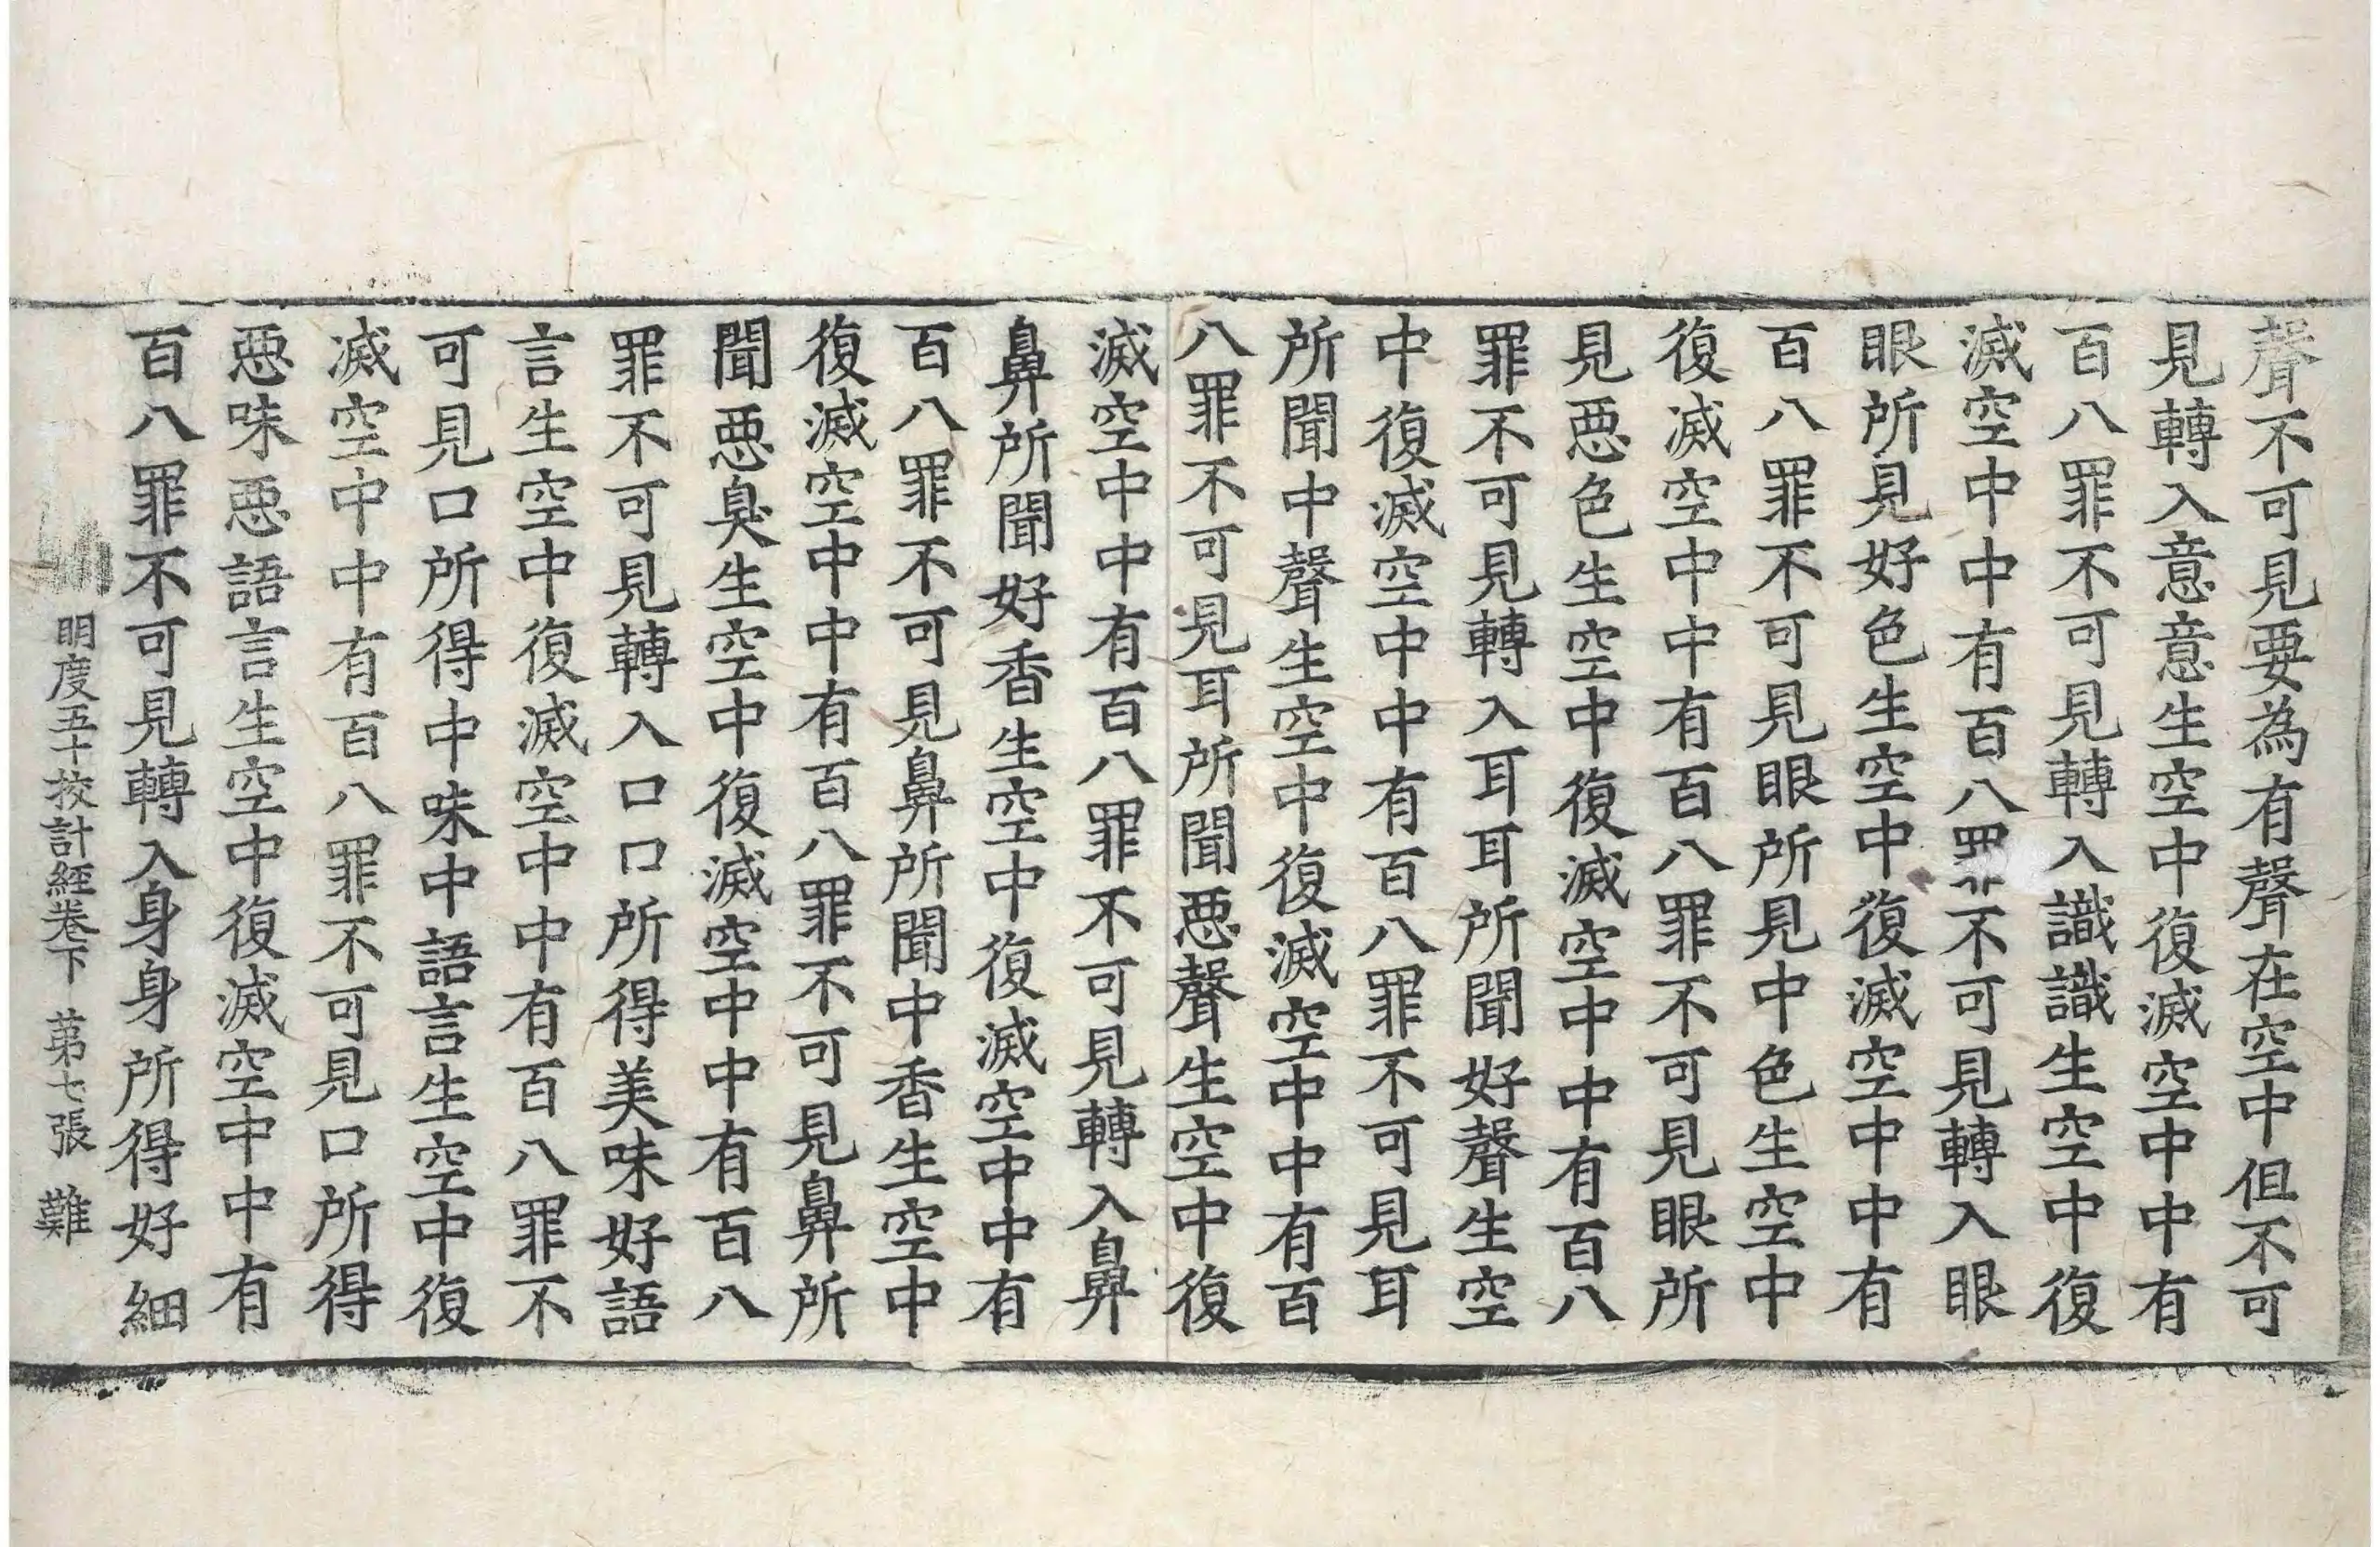 聲不可見要為有聲在空中但不可
見轉入意意生空中復滅空中中有
百八罪不可見轉入識識生空中復
滅空中中有百八罪不可見轉入眼
眼所見好色生空中復滅空中中有
百八罪不可見眼所見中色生空中
復滅空中中有百八罪不可見眼所
見惡色生空中復滅空中中有百八
罪不可見轉入耳耳所聞好聲生空
中復滅空中中有百八罪不可見耳
所聞中聲生空中復滅空中中有百
八罪不可見耳所聞惡聲生空中復
滅空中中有百八罪不可見轉入鼻
鼻所聞好香生空中復滅空中中有
百八罪不可見鼻所聞中香生空中
復滅空中中有百八罪不可見鼻所
聞惡臭生空中復滅空中中有百八
罪不可見轉入口口所得美味好語
言生空中復滅空中中有百八罪不
可見口所得中味中語言生空中復
滅空中中有百八罪不可見口所得
惡味惡語言生空中復滅空中中有
百八罪不可見轉入身身所得好細
明度五十挍計經卷下 第七張 難